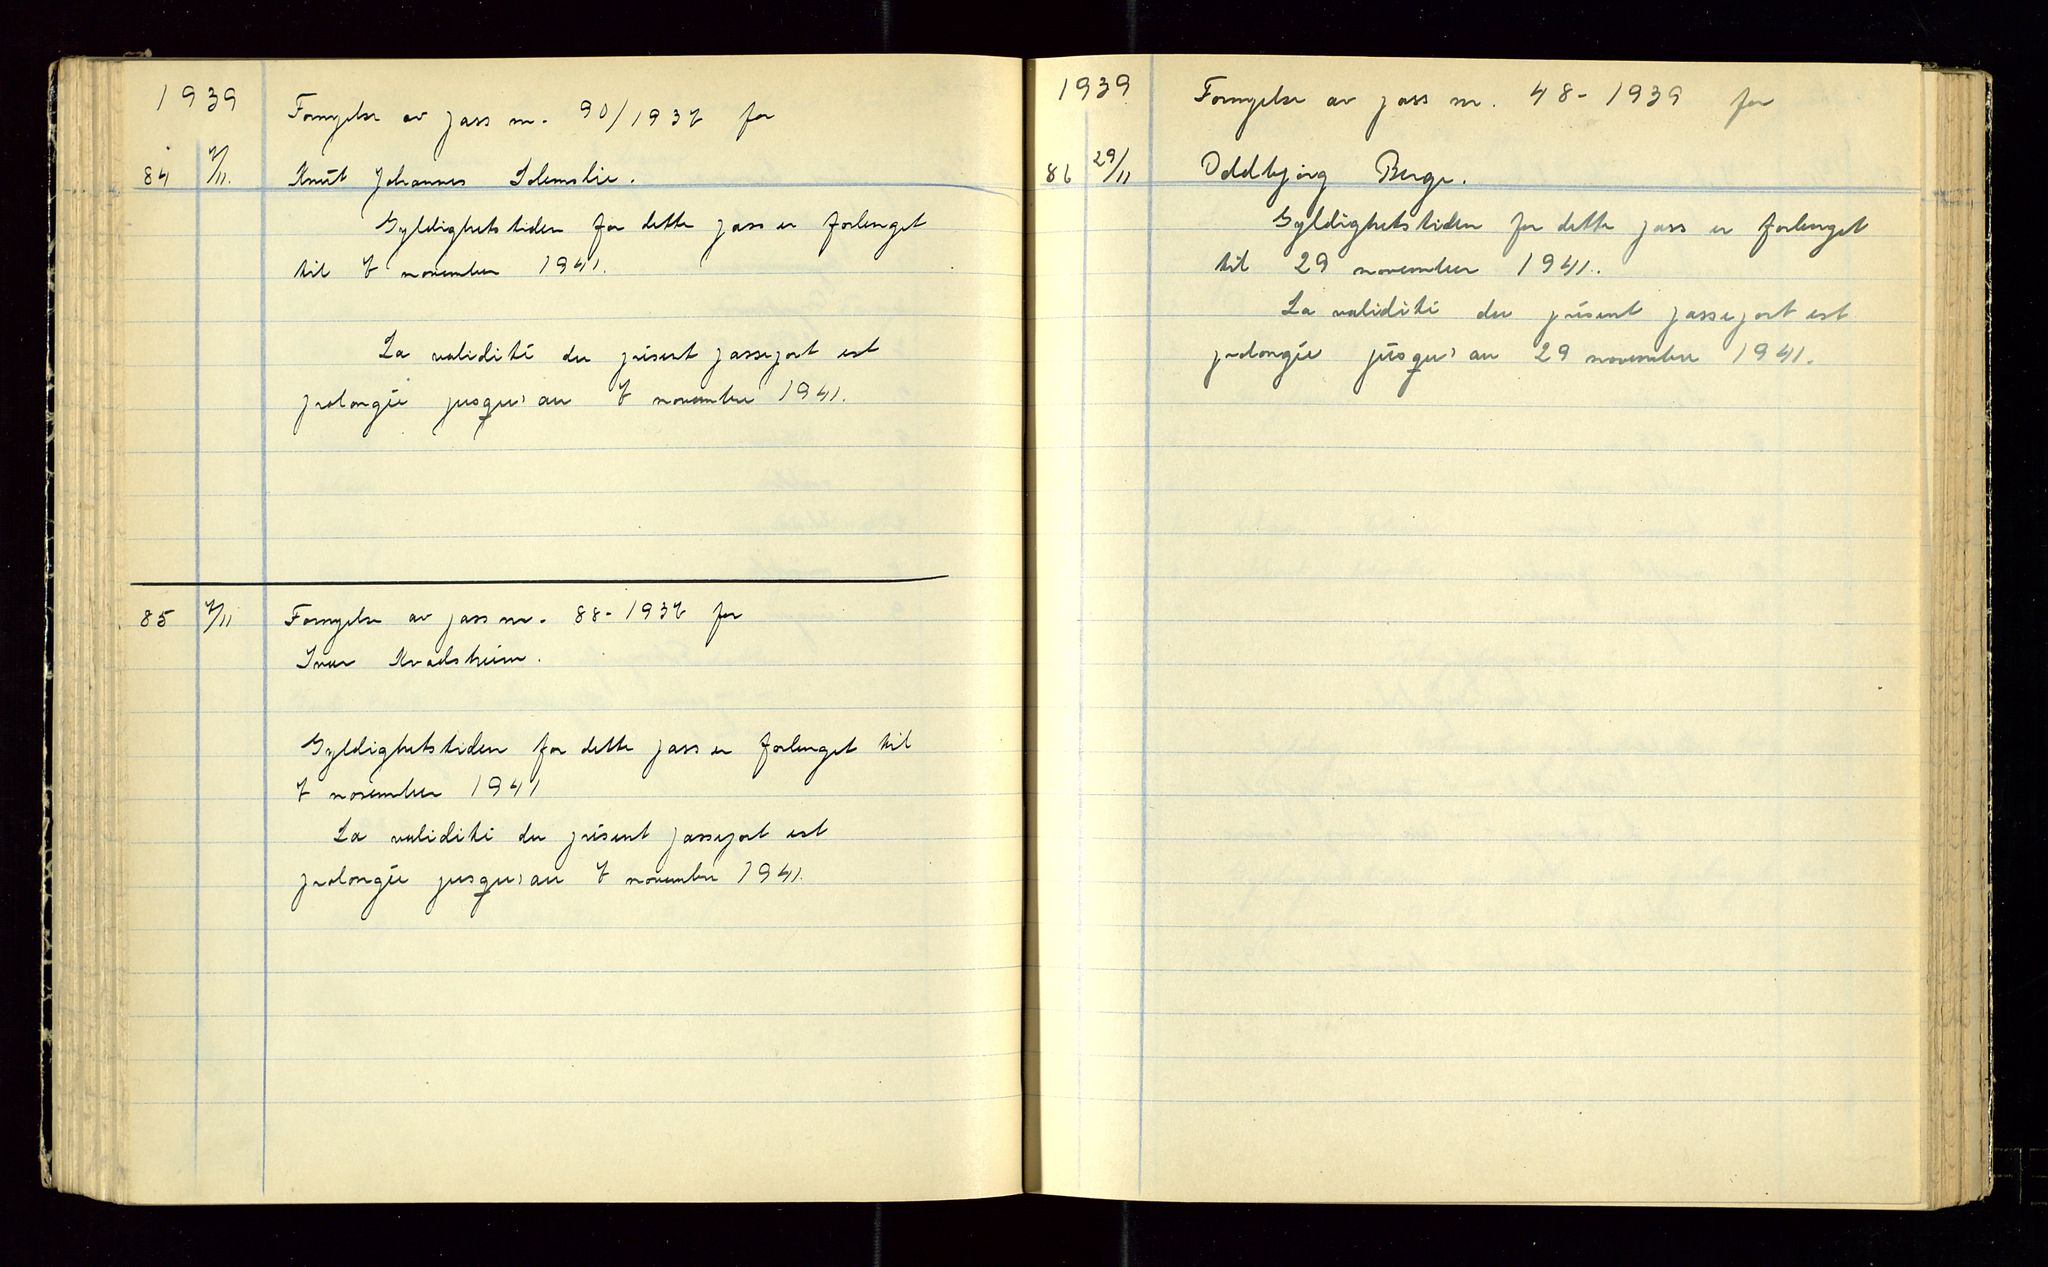 1939
Fornyelse av pass nr. 90/1937 for
84 7/11. Knut Johannes Solemslie.
Gyldighetstiden for dette pass er forlenget
til 7 november 1941.
La validité du présent passeport est
prolongée jusqu'au 7 novembre 1941.
85 7/11 Fornyelse av pass nr. 88-1937 for
Ivar Kvadsheim.
Gyldighetstiden for dette pass er forlenget til
7 november 1941
La validité du présent passeport est
prolongée jusqu'au 7 novembre 1941.
1939
Fornyelse av pass nr. 48-1939 for
86 29/11 Oddbjørg Berge.
Gyldighetstiden for dette pass er forlenget
til 29 november 1941.
La validité du présent passeport est
prolongée jusqu'au 29 novembre 1941.